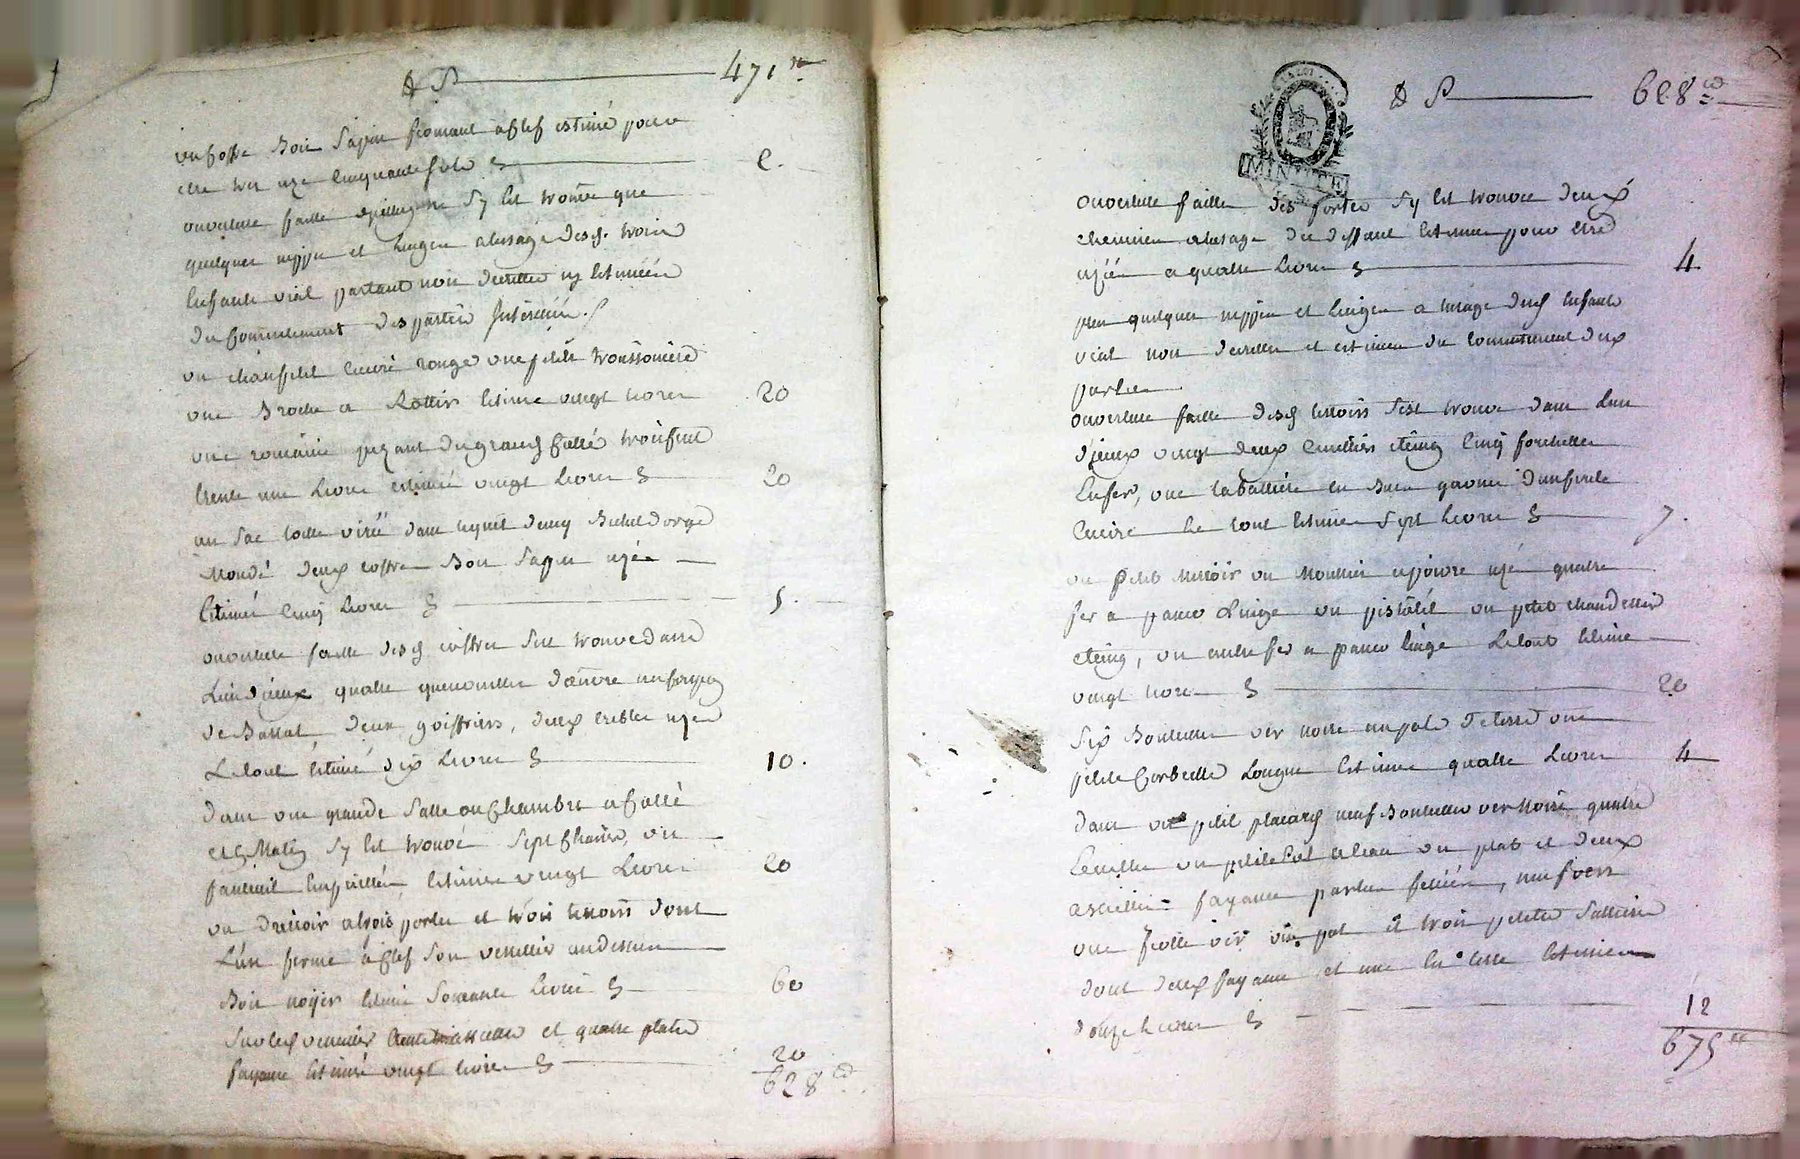 & P 471 ₶
un coffre Bois sapin fermant a clef estimé pour
etre tres uzé cinquante sols 2.
ouverture faitte sy est trouvé que
quelques nippes et linges a lusage desd. trois
Enfants vial partant non decrittes ny Estimées
du Consentement des parties Interéssées
un chaufelit cuivre rouge une petite
une Broche a Rottir Estimé vingt livres 20
une romaine pezant du grand Cotté trois cent
trente une Livre estimé vingt Livres 20
un sac toille dans lequel demy Bichet dorge
Mondé deux coffres Bois sapin uzés
Estimé cinq Livres 5.
ouverture faitte desd coffres sest trouvé dans
L'un d'iceux quatre quenouilles d'oeuvre
deux cribles uzés
Le tout Estimé dix Livres 10.
dans une grande salle ou Chambre a Cotté
et Matin sy est trouvé sept Chaises, un
fauteuil Empaillés Estimés vingt Livres 20
un Dressoir a trois portes et trois tiroirs dont
L'un ferme a clef son vessellier au dessus
Bois noyer Estimé soixante Livres 60
sur led vessellier assiettes et quatre plats
fayance Estimé vingt livres 20
628 ₶
& P 628 ₶
MINUTE
ouverture faitte des portes sy est trouvé deux
chemises a lusage du deffunt Estimées pour etre
uzées a quatre Livres 4.
plus quelques nippes et linges a lusage desd Enfants
vial non decrittes et estimées du consentement des
parties
ouverture faitte desd tiroirs sest trouvé dans L'un
d'iceux vingt deux cuilliers etaing cinq fourchettes
En fer, une tabattiere en Buis garnie d'un
cuivre Le tout Estimé sept Livres 7.
un petit Miroir un Moullin a poivre uzé quatre
fer a passer Linge un pistolet un petit chandellier
etaing, un autre fer a passer linge Le tout Estimé
vingt livres 20
six Bouteilles ver noire un pot de terre une
petite Corbeille Longue Estimée quatre Livres 4
dans un petit placard neuf Bouteilles ver Noire quatre
Ecuelles un petit Pot a l'eau un plat et deux
assiettes fayance partie felées, neuf vers
une fiolle ver un pot et trois petites sallieres
dont deux fayance et une Estimées
douze Livres 12
675 ₶